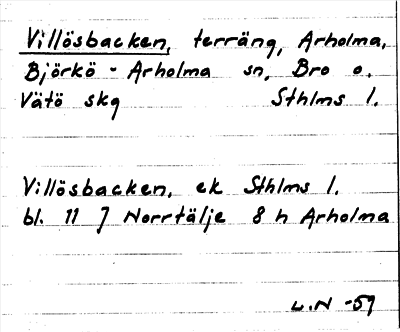 Villösbacken, terräng, Arholma,
Björkö - Arholma sn, Bro o.
Vätö skg Sthlms l.
Villösbacken, ek Sthlms l.
bl. 11 J Norrtälje 8 h Arholma
L.N -59